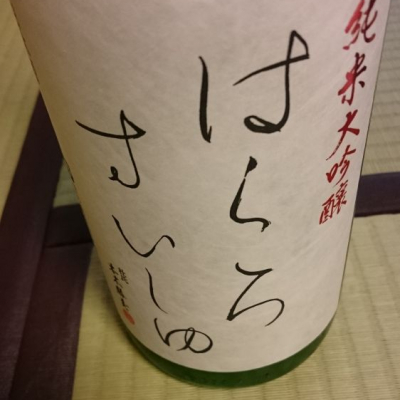 純米大吟醸
はくろ
すいしゅ